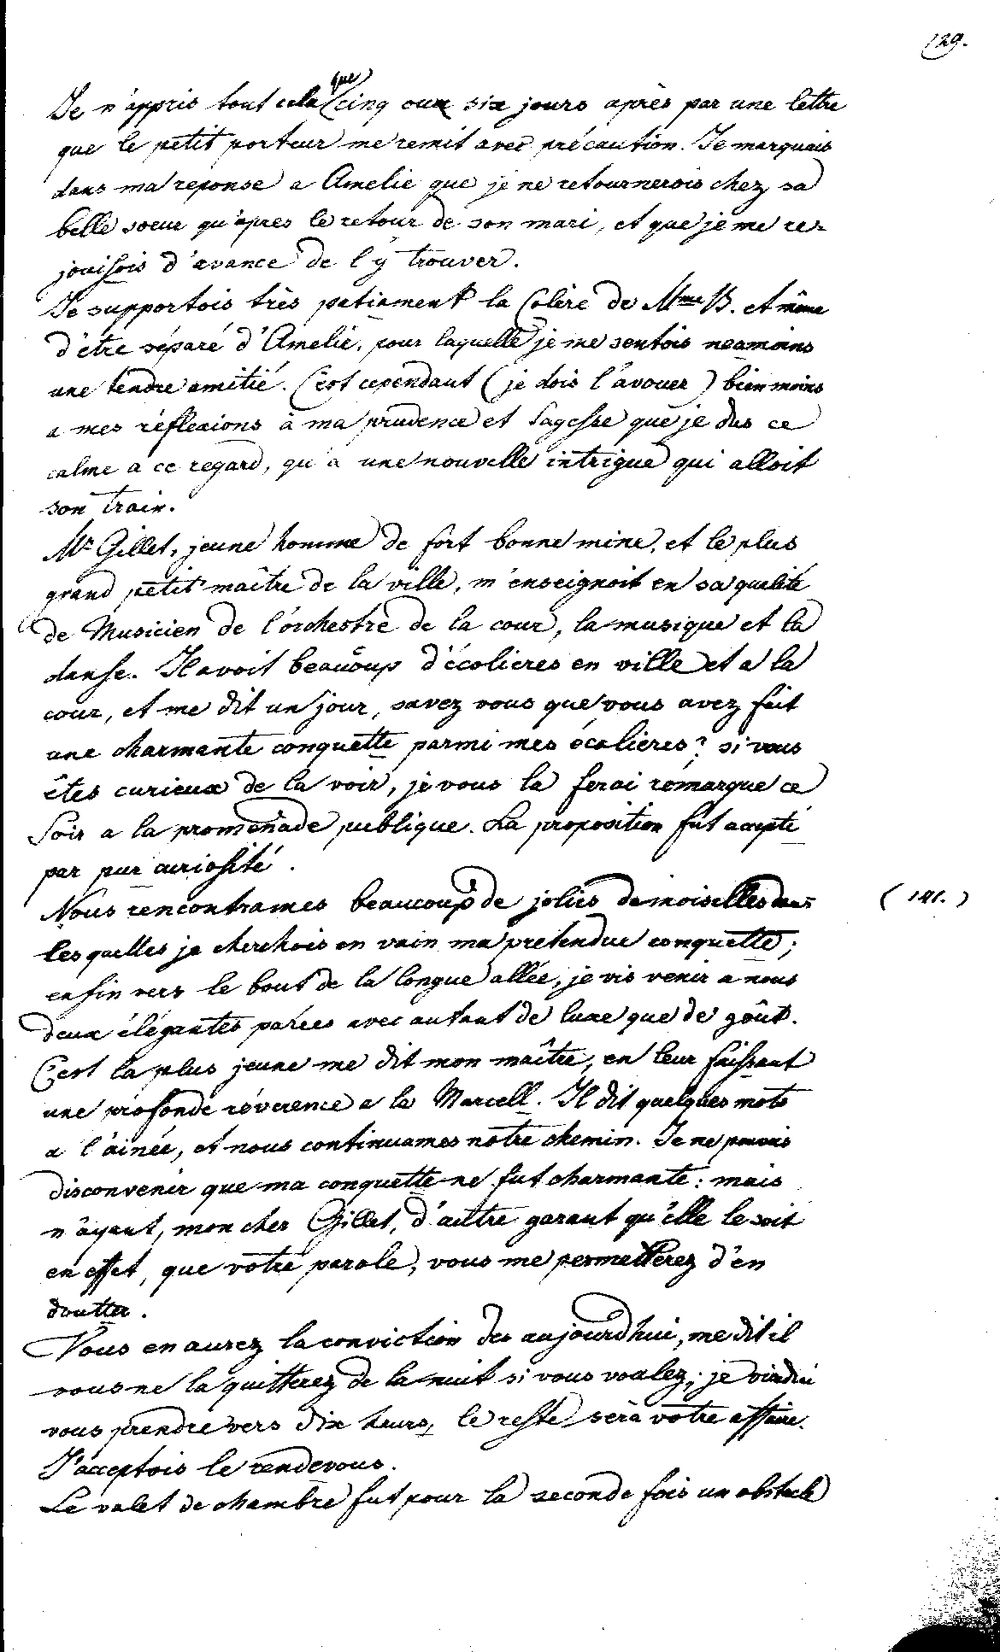 129.
Je n'appris tout cela que cinq oux six jours après par une lettre
que le petit porteur me remit avec précaution. Je marquais
dans ma reponse a Amelie que je ne retournerois chez sa
belle soeur qu'apres le retour de son mari, et que je me re-
jouisois d'avance de l'y trouver.
Je supportois très patiament la Colère de Mme B. et même
d'être séparé d'Amelie, pour laquelle je me sentois neamoins
une tendre amitié. C'est cependant (je dois l'avouer) bien moins
a mes réflexions à ma prudence et sagesse que je dus ce
calme a ce regard, qu'a une nouvelle intrigue qui alloit
son train.
Mr Gillet, jeune homme de fort bonne mine, et le plus
grand petit maître de la ville, m'enseignoit en sa qualité
de Musicien de l'orchestre de la cour, la musique et la
danse. Il avoit beaucoup d'écolieres en ville et a la
cour, et me dit un jour, savez vous que vous avez fait
une charmante conquette parmi mes écolieres? si vous
êtes curieux de la voir, je vous la ferai remarque ce
soir a la promenade publique. La proposition fut accepté
par pur curiosité.
Nous rencontrames beaucoup de jolies demoiselles dans (141.)
lesquelles je cherchois en vain ma pretendue conquette;
enfin vers le bout de la longue allée, je vis venir a nous
deux élégantes parées avec autant de luxe que de goût.
C'est la plus jeune me dit mon maître, en leur faissant
une profonde réverence a la Marcell. Il dit quelques mots
a l'ainée, et nous continuames notre chemin. Je ne pouvois
disconvenir que ma conquette ne fut charmante: mais
n'ayant, mon cher Gillet, d'autre garant qu'elle le soit
en effet, que votre parole, vous me permetterez d'en
doutter.
Vous en aurez la conviction des aujourd'hui, me dit il
vous ne la quitterez de la nuit si vous voulez; je viendrai
vous prendre vers dix heurs, le reste sera votre affaire.
J'acceptois le rendevous.
Le valet de chambre fut pour la seconde fois un obstacle